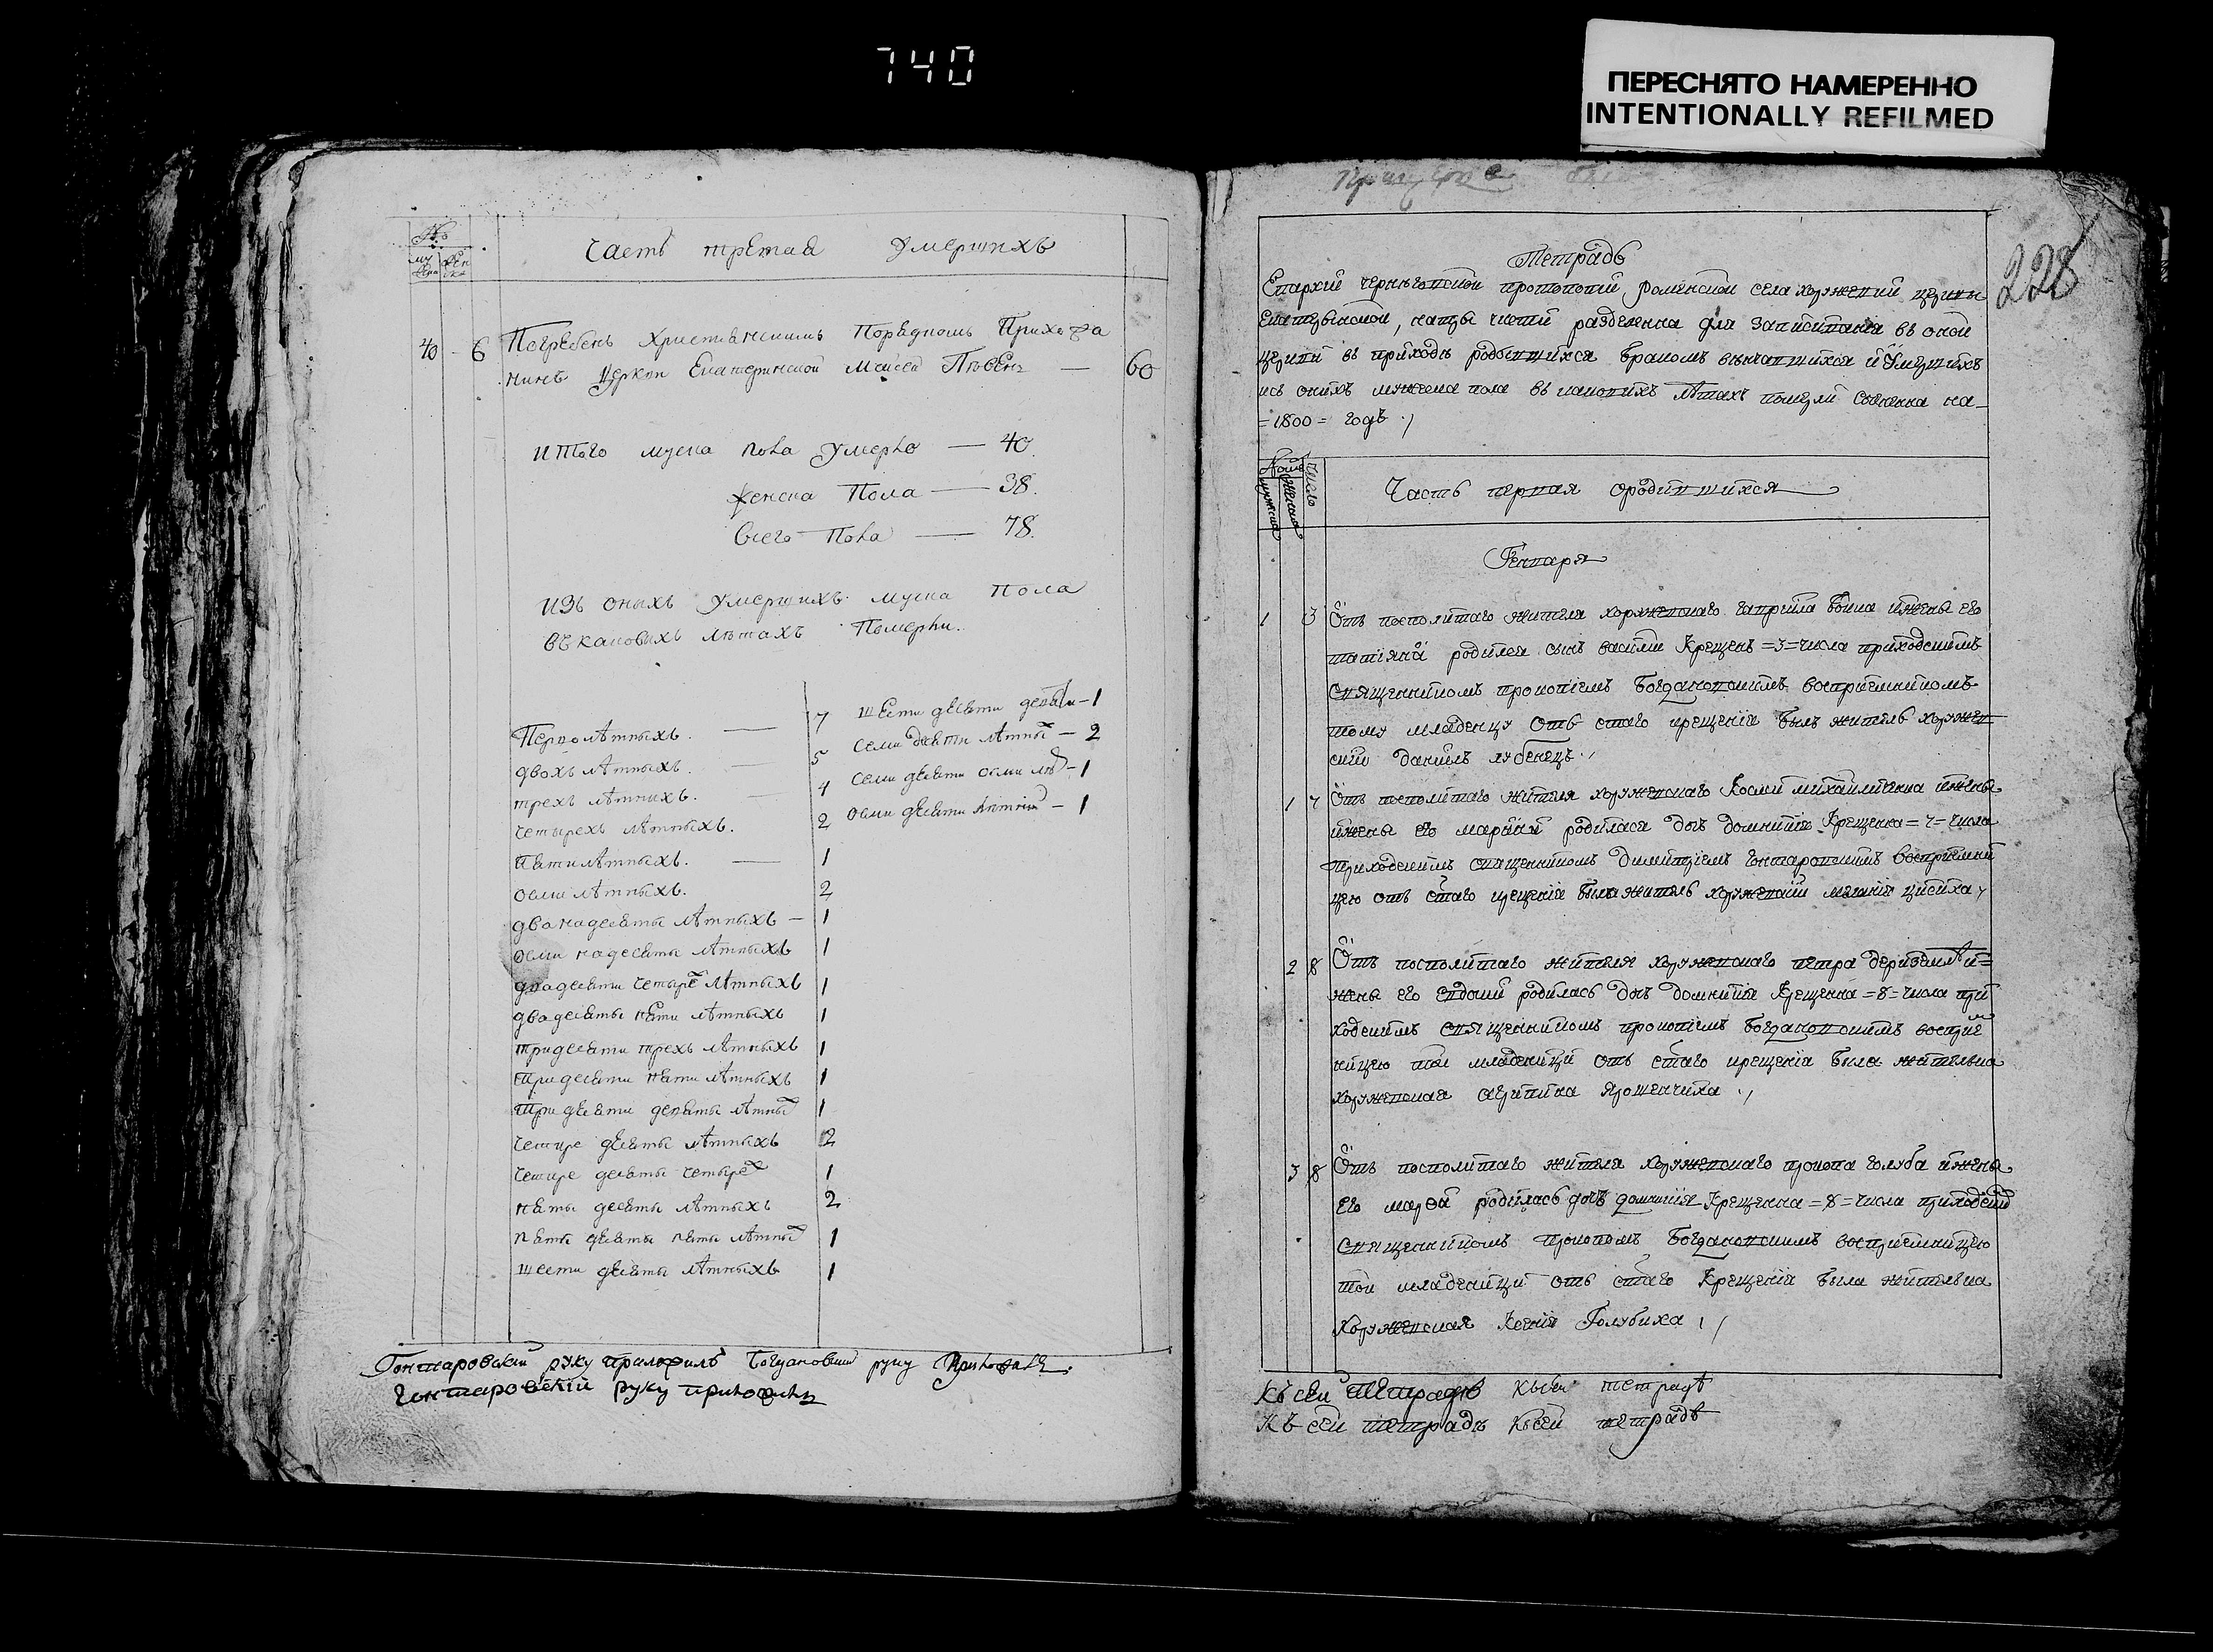 740
ПЕРЕСНЯТО НАМЕРЕННО
INTENTIONALLY REFILMED
№
Часть третая умершихъ
40 - 6 Погребенъ Христианскимъ Порядкомъ Прихожа
нинъ Церкви Екатерининской Моисей — 60
итого муска пола умерло — 40.
женска Пола — 38.
Всего Пола — 78.
изъ оныхъ умершихъ муска пола
въ каковыхъ лѣтахъ Померли.
Перволѣтныхъ. — 7
двохъ лѣтныхъ. — 5
трехъ лѣтнихъ. — 4
четырехъ лѣтныхъ. 2
пятилѣтныхъ. — 1
осми лѣтныхъ. 2
двонадесяты лѣтныхъ — 1
осми надесяты лѣтныхъ 1
двадесяти четырех лѣтныхъ 1
двадесяты пяти лѣтныхъ 1
тридесяти трехъ лѣтныхъ 1
тридесяти пяти лѣтныхъ 1
тридесяти девяты лѣтных 1
четире десяты лѣтныхъ 2
четире десяты четырех 1
пяты десяты лѣтныхъ 2
пяты десяты пяты лѣтных 1
шести десяты лѣтныхъ 1
шести десяти девяти — 1
семи десяти лѣтных — 2
семи десяти осми лѣ — 1
осми десяти лѣтних — 1
Гонтаровский руку приложилъ Богдановский руку приложилъ.
Гонтаровскій руку приложилъ
228
Тетрадь
Епархии черниговской протопопии роменской села хоружевки церкви
Екатерининской, на три части разделенна для записивания въ оной
церкви въ приходѣ родившихся бракомъ вѣнчавшихся и умершихъ
исъ онихъ мужеска пола въ каковихъ лѣтахъ померли сочиненна на
=1800= годъ ./
мужеска женска число
Часть первая о родившихся
Генваря
1 3 Отъ посполитаго жителя хоружевскаго гавриила бойка и жены его
татіяни родился сынъ василий Крещенъ =3= числа приходскимъ
священникомъ прокопіемъ Богдановскимъ восприемникомъ
тому младенцу отъ стаго крещенія былъ житель хоружев
ский данилъ лубенецъ ./
1 7 Отъ посполитаго жителя хоружевскаго Космы михайличенка и жены
и жены его марини родилася дочь домникия Крещенна =7= числа
приходскимъ священникомъ димитріемъ гонтаровскимъ восприемни
цею отъ стаго крещенія была житель хоружевский
2 8 Отъ посполитаго жителя хоружевскаго петра и=
жены его евдокии родилась дочь домникия Крещенна =8= числа при
ходскимъ священникомъ прокопіемъ Богдановскимъ восприем
ницею той младеници отъ стаго крещенія была жителька
хоружевская агрипина ярошенчиха ./
3 8 Отъ посполитаго жителя хоружевскаго прокопа голуба и жены
его марѳи родилась дочь домникия Крещенна =8= числа приходским
священникомъ прокопомъ Богдановскимъ восприемницею
той младеници отъ стаго Крещенія была жителька
Хоружевская Ксения Голубиха ./
Къ сей тетрадѣ къ сей тетрадѣ
Къ сей тетрадѣ къ сей тетрадѣ